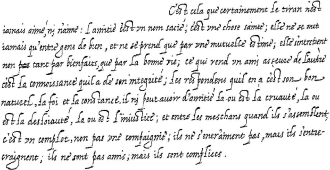 C'est cela que certainement le tiran n'est
iamais aimé, ni n'aime: L'amitié c'est un nom sacré; c'est une chose sainte; elle ne se met
iamais qu'entre gens de bien, et ne se prend que par une mutuelle estime; elle s'entretient
non pas tant par bienfaits, que par la bonne vie; ce qui rend un ami asseuré de l'autre
c'est la connoissance qu'il a de son integrité; Les respondens qu'il en a c'est son bon
naturel, la foi et la constance. il ni peut avoir d'amitié la ou est la cruauté, la ou
est la desloiauté, la ou est l'iniustice; et entre les meschans quand ils s'assemblent,
c'est un complot, non pas une compaignie; ils ne s'entraiment pas, mais ils s'entre-
craignent; ils ne sont pas amis, mais ils sont complices.